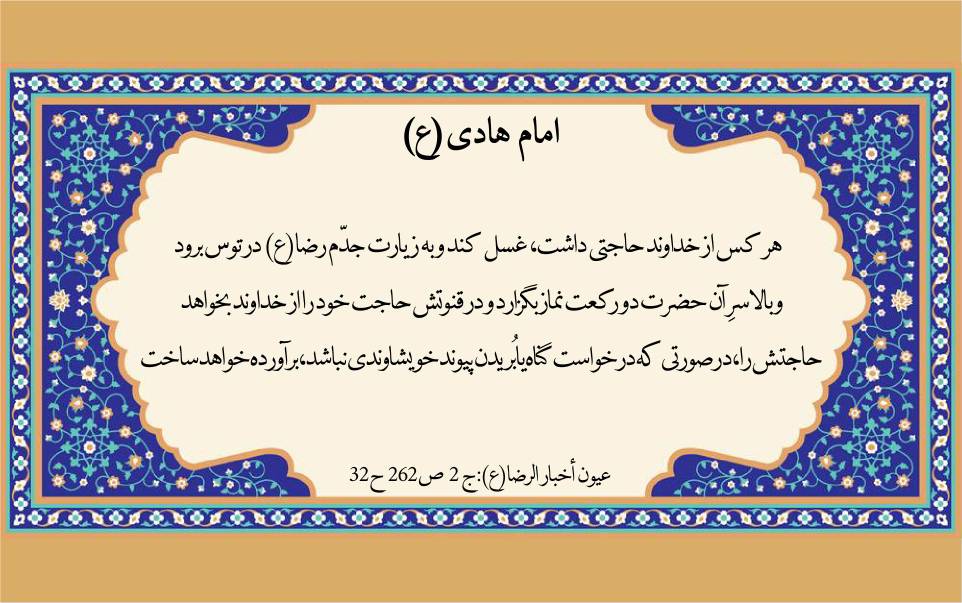 امام هادی (ع)
هر کس از خداوند حاجتی داشت، غسل کند و به زیارت جدّم رضا (ع) در توس برود
و بالا سرِ آن حضرت دو رکعت نماز بگزارد و در قنوتش حاجت خود را از خداوند بخواهد
حاجتش را، در صورتی که درخواست گناه یا بُریدن پیوند خویشاوندی نباشد، برآورده خواهد ساخت
عیون أخبار الرضا (ع): ج 2 ص 262 ح 32